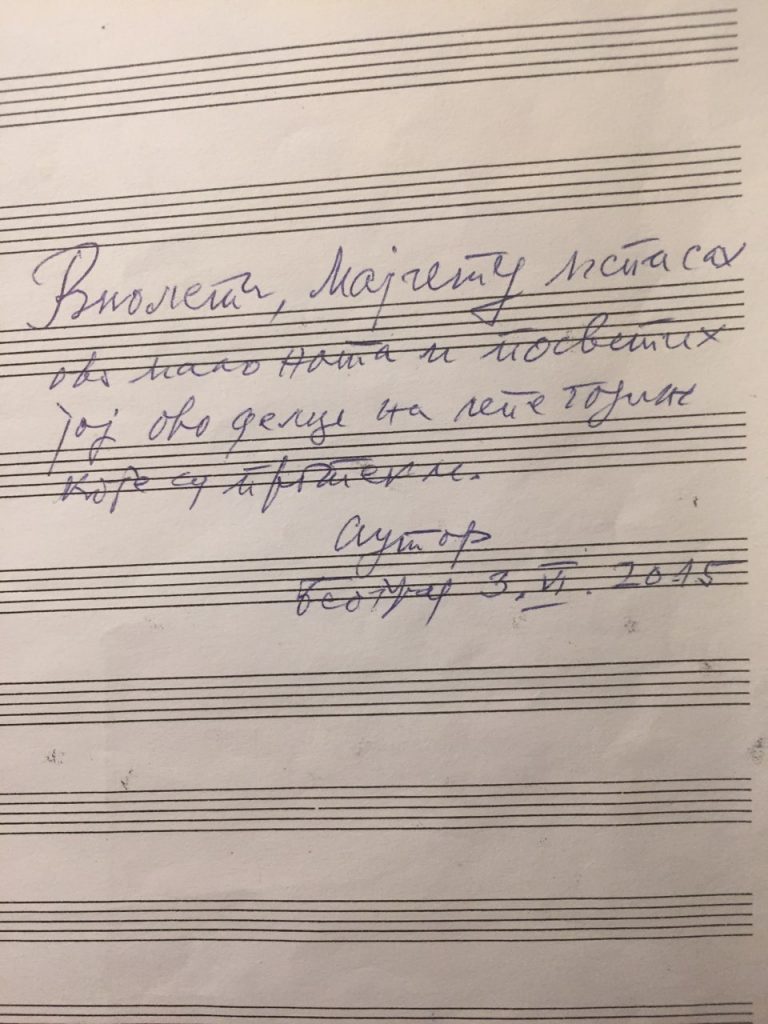 Виолети, Мајчету испасах
ово мало нота и посветих
јој ово делце на лепе године
које су протекле.
Аутор
Београд 3. VI. 2015